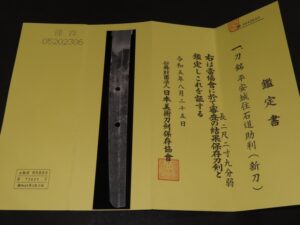 鑑定書
一、刀 銘 平安城住石道助利（新刀）
長二尺二寸九分弱
右は當協會に於て審査の結果保存刀剣と
鑑定しこれを證する
令和五年八月二十五日
公益財団法人日本美術刀剣保存協會
保存
05202306